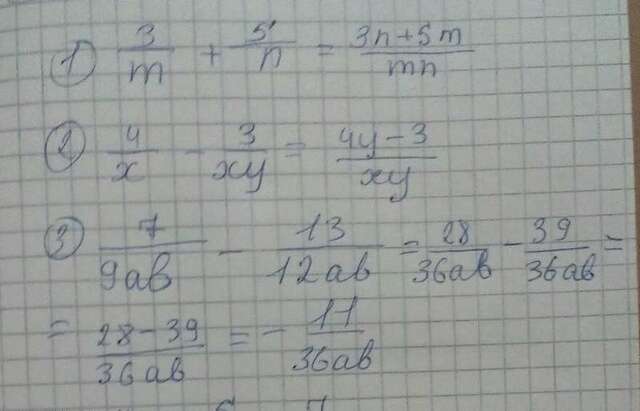 1) 3/m + 5/n = (3n+5m)/(mn)
2) 4/x - 3/(xy) = (4y-3)/(xy)
3) 7/(9ab) - 13/(12ab) = 28/(36ab) - 39/(36ab) =
= (28-39)/(36ab) = - 11/(36ab)